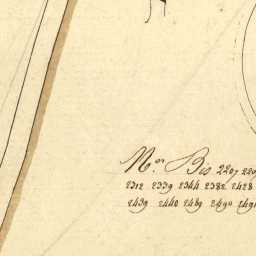 N.os Bis 2207 220
2312 2339 2344 2382 2428
2439 2440 2489 2490 2491